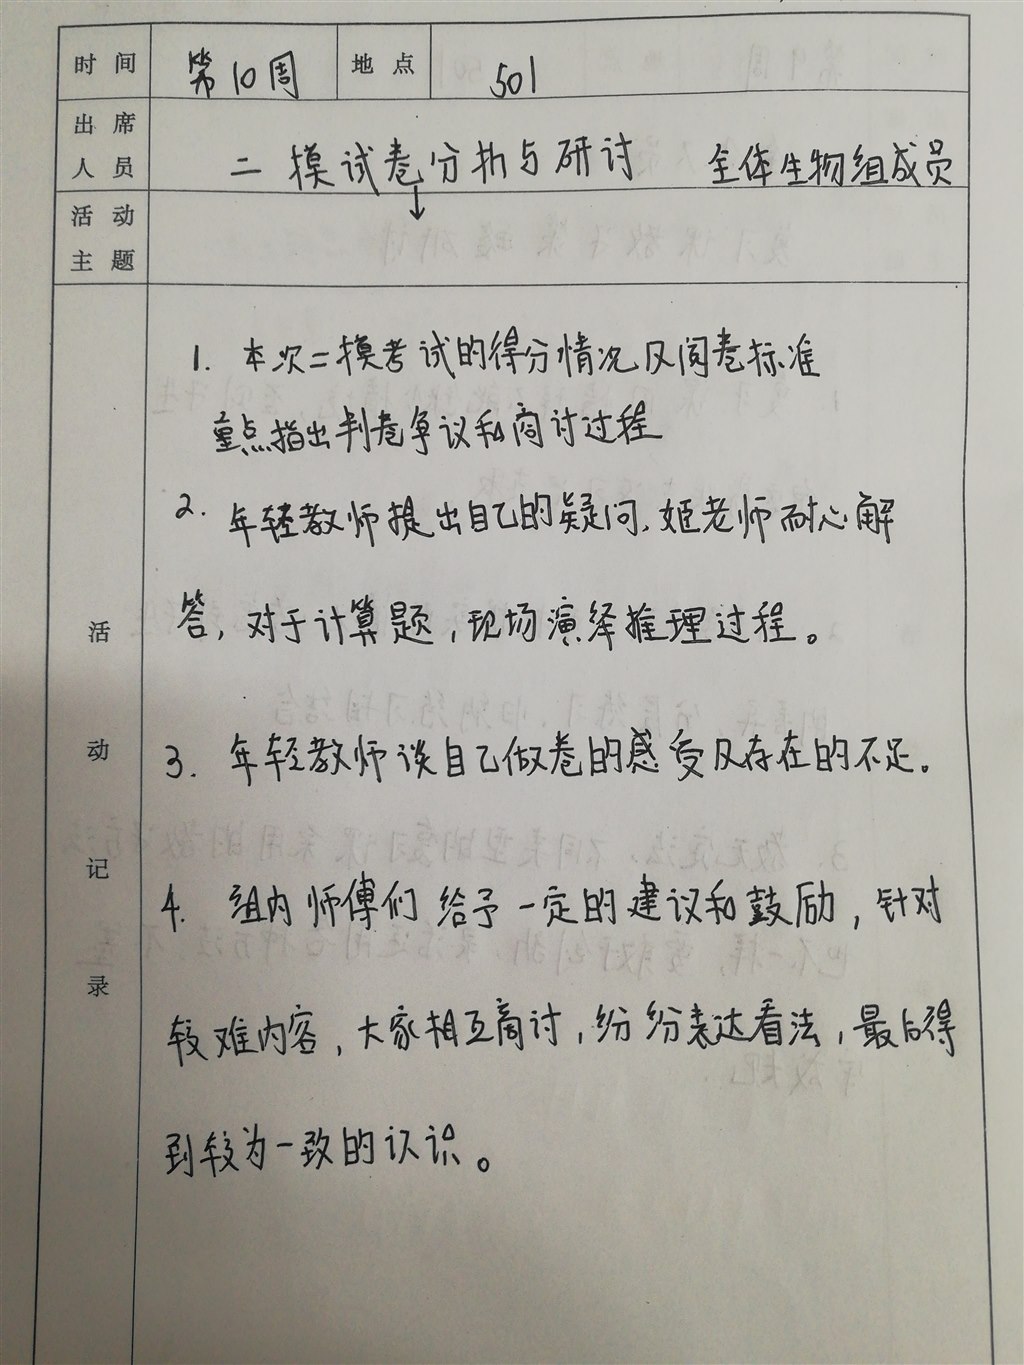 时间 第10周 地点 501
出席
人员 二模试卷分析与研讨 全体生物组成员
↓
活动
主题
活动记录
1. 本次二模考试的得分情况及阅卷标准
重点指出判卷争议和商讨过程
2. 年轻教师提出自己的疑问,姬老师耐心解
答,对于计算题,现场演绎推理过程。
3. 年轻教师谈自己做卷的感受及存在的不足。
4. 组内师傅们给予一定的建议和鼓励,针对
较难内容,大家相互商讨,纷纷表达看法,最后得
到较为一致的认识。